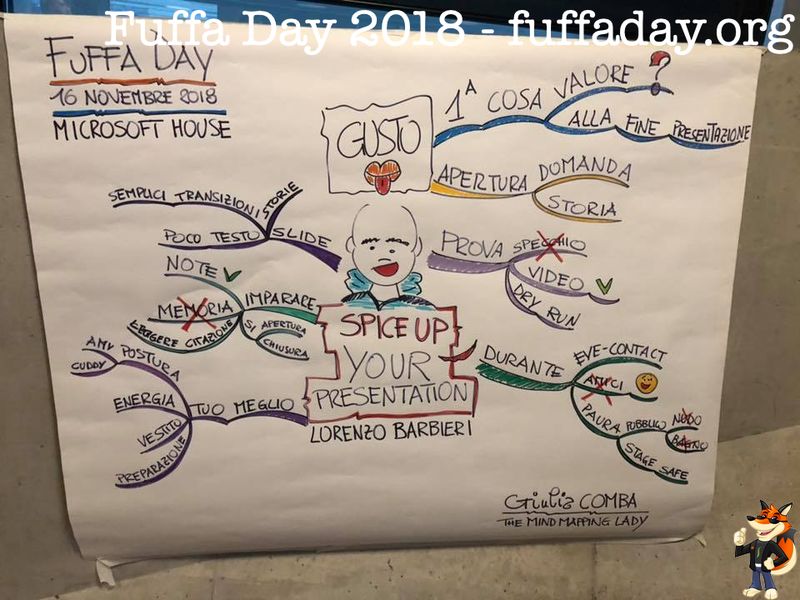 Fuffa Day 2018 - fuffaday.org
FUFFA DAY
16 NOVEMBRE 2018
MICROSOFT HOUSE
GUSTO
1A COSA VALORE ?
ALLA FINE PRESENTAZIONE
APERTURA DOMANDA
STORIA
SEMPLICI TRANSIZIONI STORIE
POCO TESTO SLIDE
PROVA SPECCHIO
VIDEO
DRY RUN
NOTE
MEMORIA IMPARARE
LEGGERE CITAZIONE SI APERTURA
CHIUSURA
SPICE UP
YOUR
PRESENTATION
LORENZO BARBIERI
DURANTE EYE-CONTACT
AMICI
PAURA PUBBLICO NUDO
BAGNO
STAGE SAFE
AMY POSTURA
CUDDY
ENERGIA TUO MEGLIO
VESTITO
PREPARAZIONE
Giulia COMBA
THE MIND MAPPING LADY